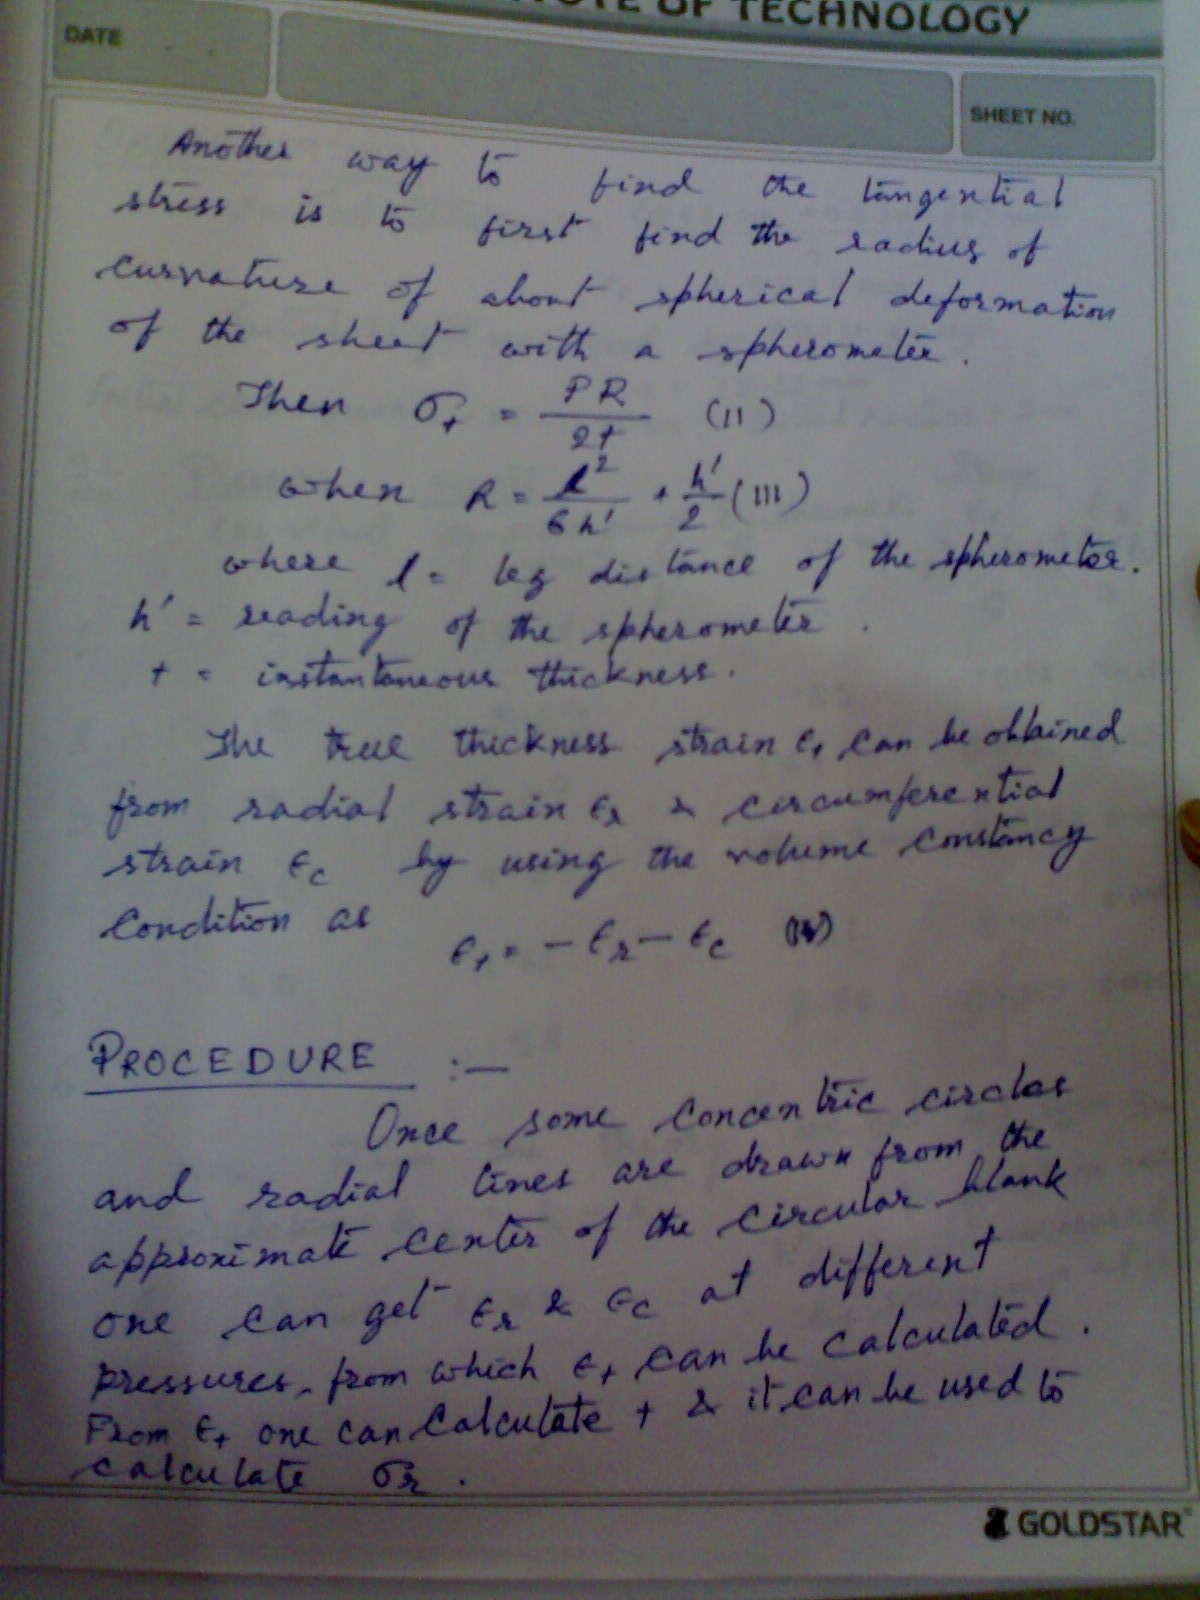 NOTE OF TECHNOLOGY
DATE
SHEET NO.
Another way to find the tangential
stress is to first find the radius of
curvature of about spherical deformation
of the sheet with a spherometer.
Then σt = PR/2t (II)
when R = l²/6h' + h'/2 (III)
where l = leg distance of the spherometer.
h' = reading of the spherometer.
t = instantaneous thickness.
The true thickness strain εt can be obtained
from radial strain εr & circumferential
strain εc by using the volume constancy
condition as
εt = - εr - εc (IV)
PROCEDURE :—
Once some concentric circles
and radial lines are drawn from the
approximate center of the circular blank
one can get εr & εc at different
pressures, from which εt can be calculated.
From εt one can calculate t & it can be used to
calculate σr.
GOLDSTAR